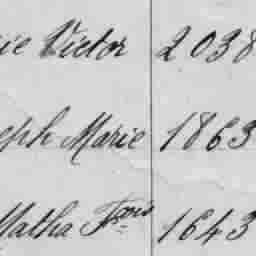 ie Victor 2038
eph Marie 1863
Matha Fçois 1643